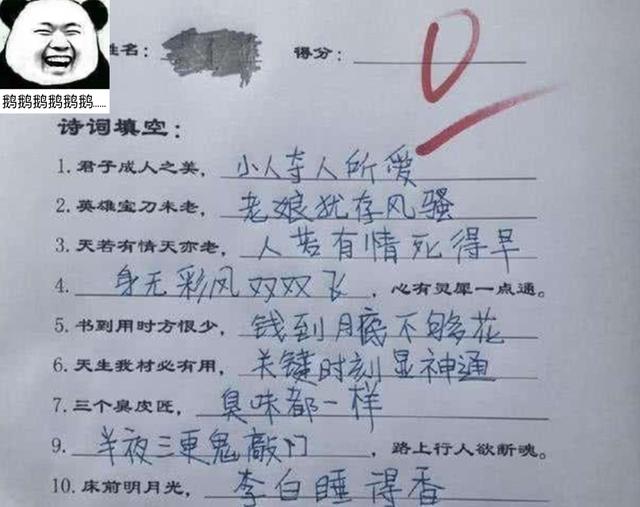 鹅鹅鹅鹅鹅鹅......
姓名： 得分： 0
诗词填空：
1.君子成人之美，小人夺人所爱
2.英雄宝刀未老，老娘犹存风骚
3.天若有情天亦老，人若有情死得早
4.身无彩风双双飞，心有灵犀一点通。
5.书到用时方恨少，钱到月底不够花
6.天生我材必有用，关键时刻显神通
7.三个臭皮匠，臭味都一样
9.半夜三更鬼敲门，路上行人欲断魂。
10.床前明月光，李白睡得香